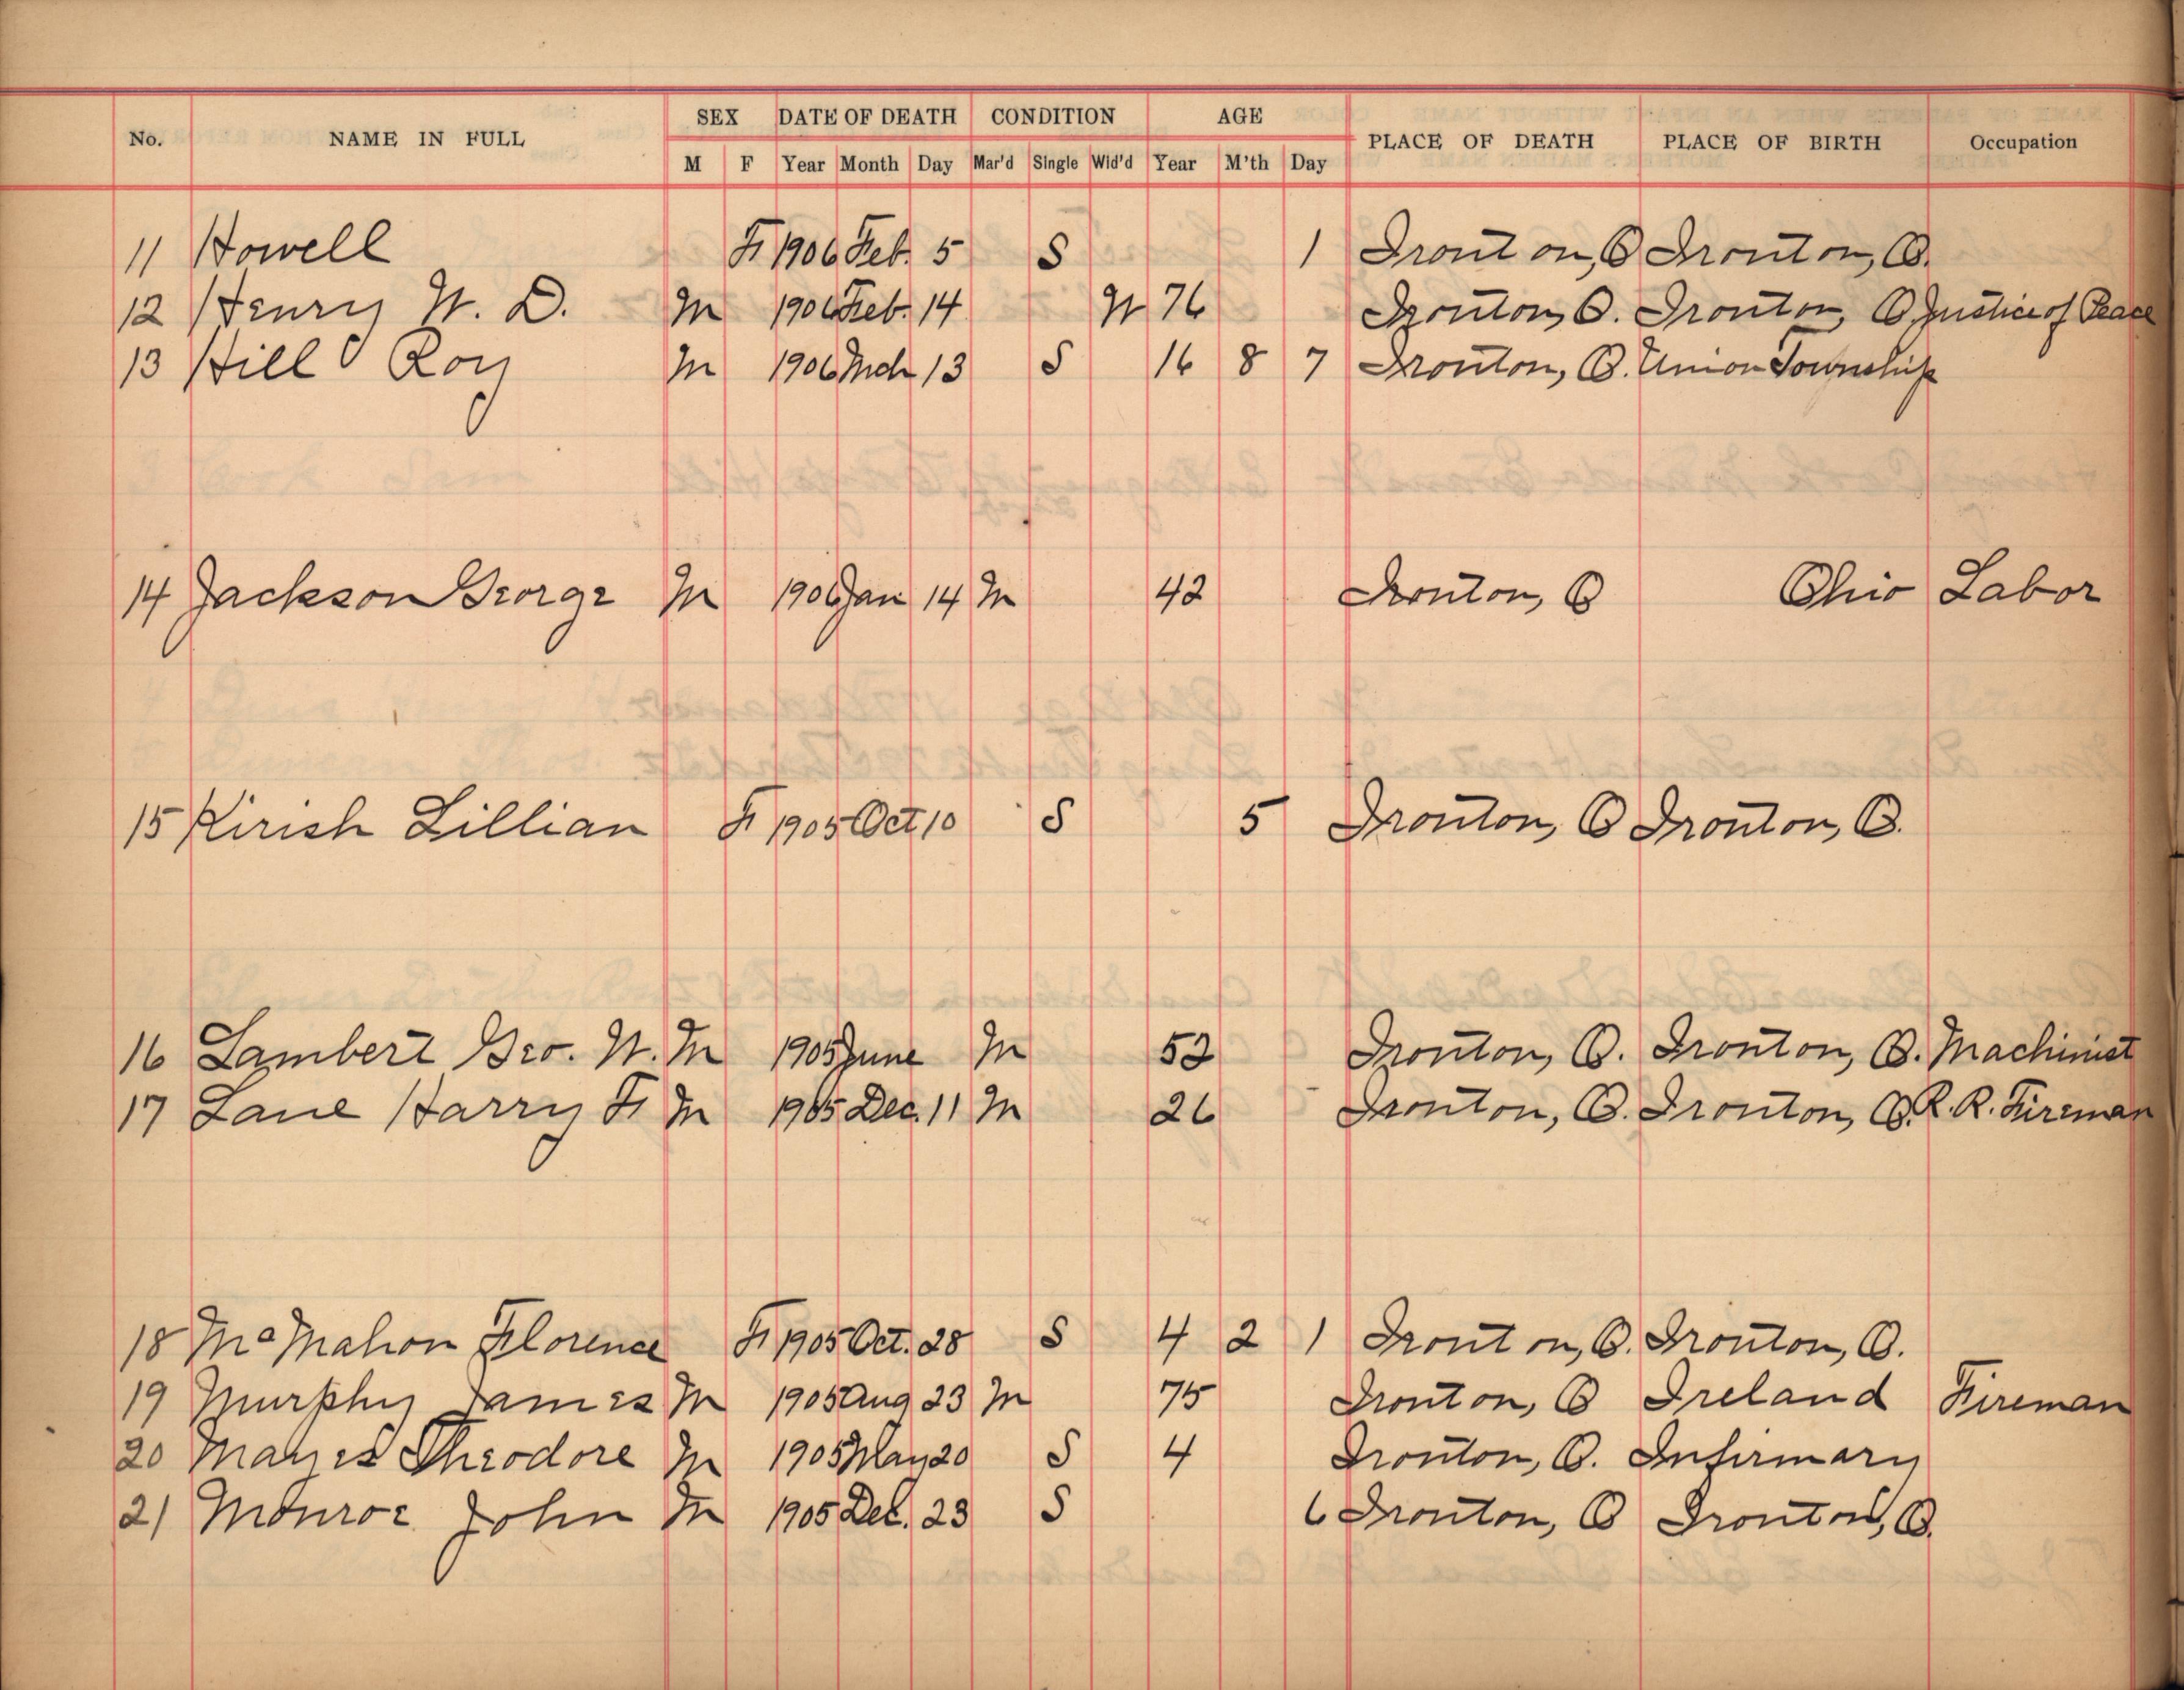 No. NAME IN FULL SEX DATE OF DEATH CONDITION AGE PLACE OF DEATH PLACE OF BIRTH Occupation
M F Year Month Day Mar'd Single Wid'd Year M'th Day
11 Howell F 1906 Feb. 5 S 1 Ironton, O Ironton, O.
12 Henry W. D. M 1906 Feb. 14 W 76 Ironton, O. Ironton, O Justice of Peace
13 Hill Roy M 1906 Mch 13 S 16 8 7 Ironton, O. Union Township
14 Jackson George M 1906 Jan 14 M 42 Ironton, O Ohio Labor
15 Kirish Lillian F 1905 Oct 10 S 5 Ironton, O Ironton, O.
16 Lambert Geo. W. M 1905 June M 52 Ironton, O. Ironton, O. Machinist
17 Lane Harry F M 1905 Dec. 11 M 26 Ironton, O. Ironton, O. R. R. Fireman
18 McMahon Florence F 1905 Oct. 28 S 4 2 1 Ironton, O. Ironton, O.
19 Murphy James M 1905 Aug 23 M 75 Ironton, O Ireland Fireman
20 Mayes Theodore M 1905 May 20 S 4 Ironton, O. Infirmary
21 Monroe John M 1905 Dec. 23 S 6 Ironton, O Ironton, O.